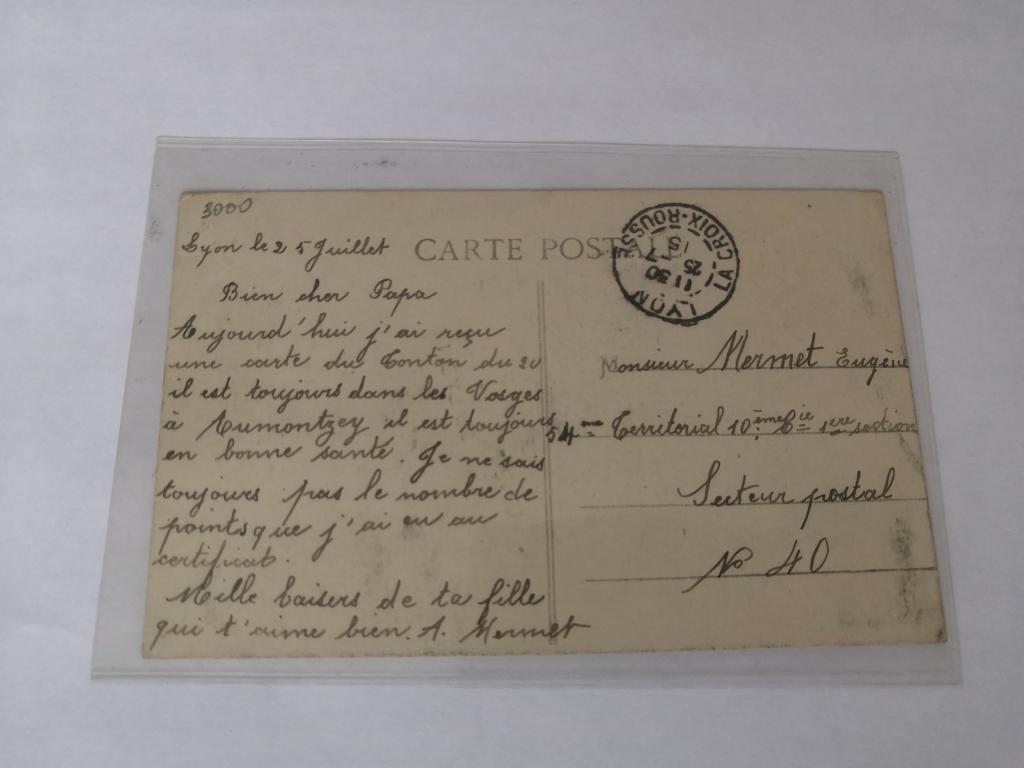 3000
Lyon le 25 Juillet
CARTE POSTALE
Bien cher Papa
Aujourd'hui j'ai reçu
une carte du Tonton du 20
il est toujours dans les Vosges
à Aumontzey il est toujours
en bonne santé. Je ne sais
toujours pas le nombre de
points que j'ai eu au
certificat.
Mille baisers de ta fille
qui t'aime bien. A. Mermet
LYON LA CROIX-ROUSSE
11 30
25
7
15
Monsieur Mermet Eugène
54me Territorial 10ème Cie 1ere section
Secteur postal
No 40